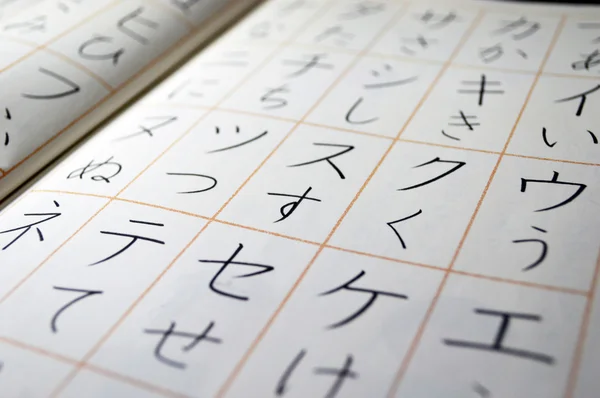 あ
イ い
ウ う
エ
カ か
キ き
ク く
ケ け
サ さ
シ し
ス す
セ せ
タ た
チ ち
ツ つ
テ て
に
ヌ ぬ
ネ
ヒ ひ
フ